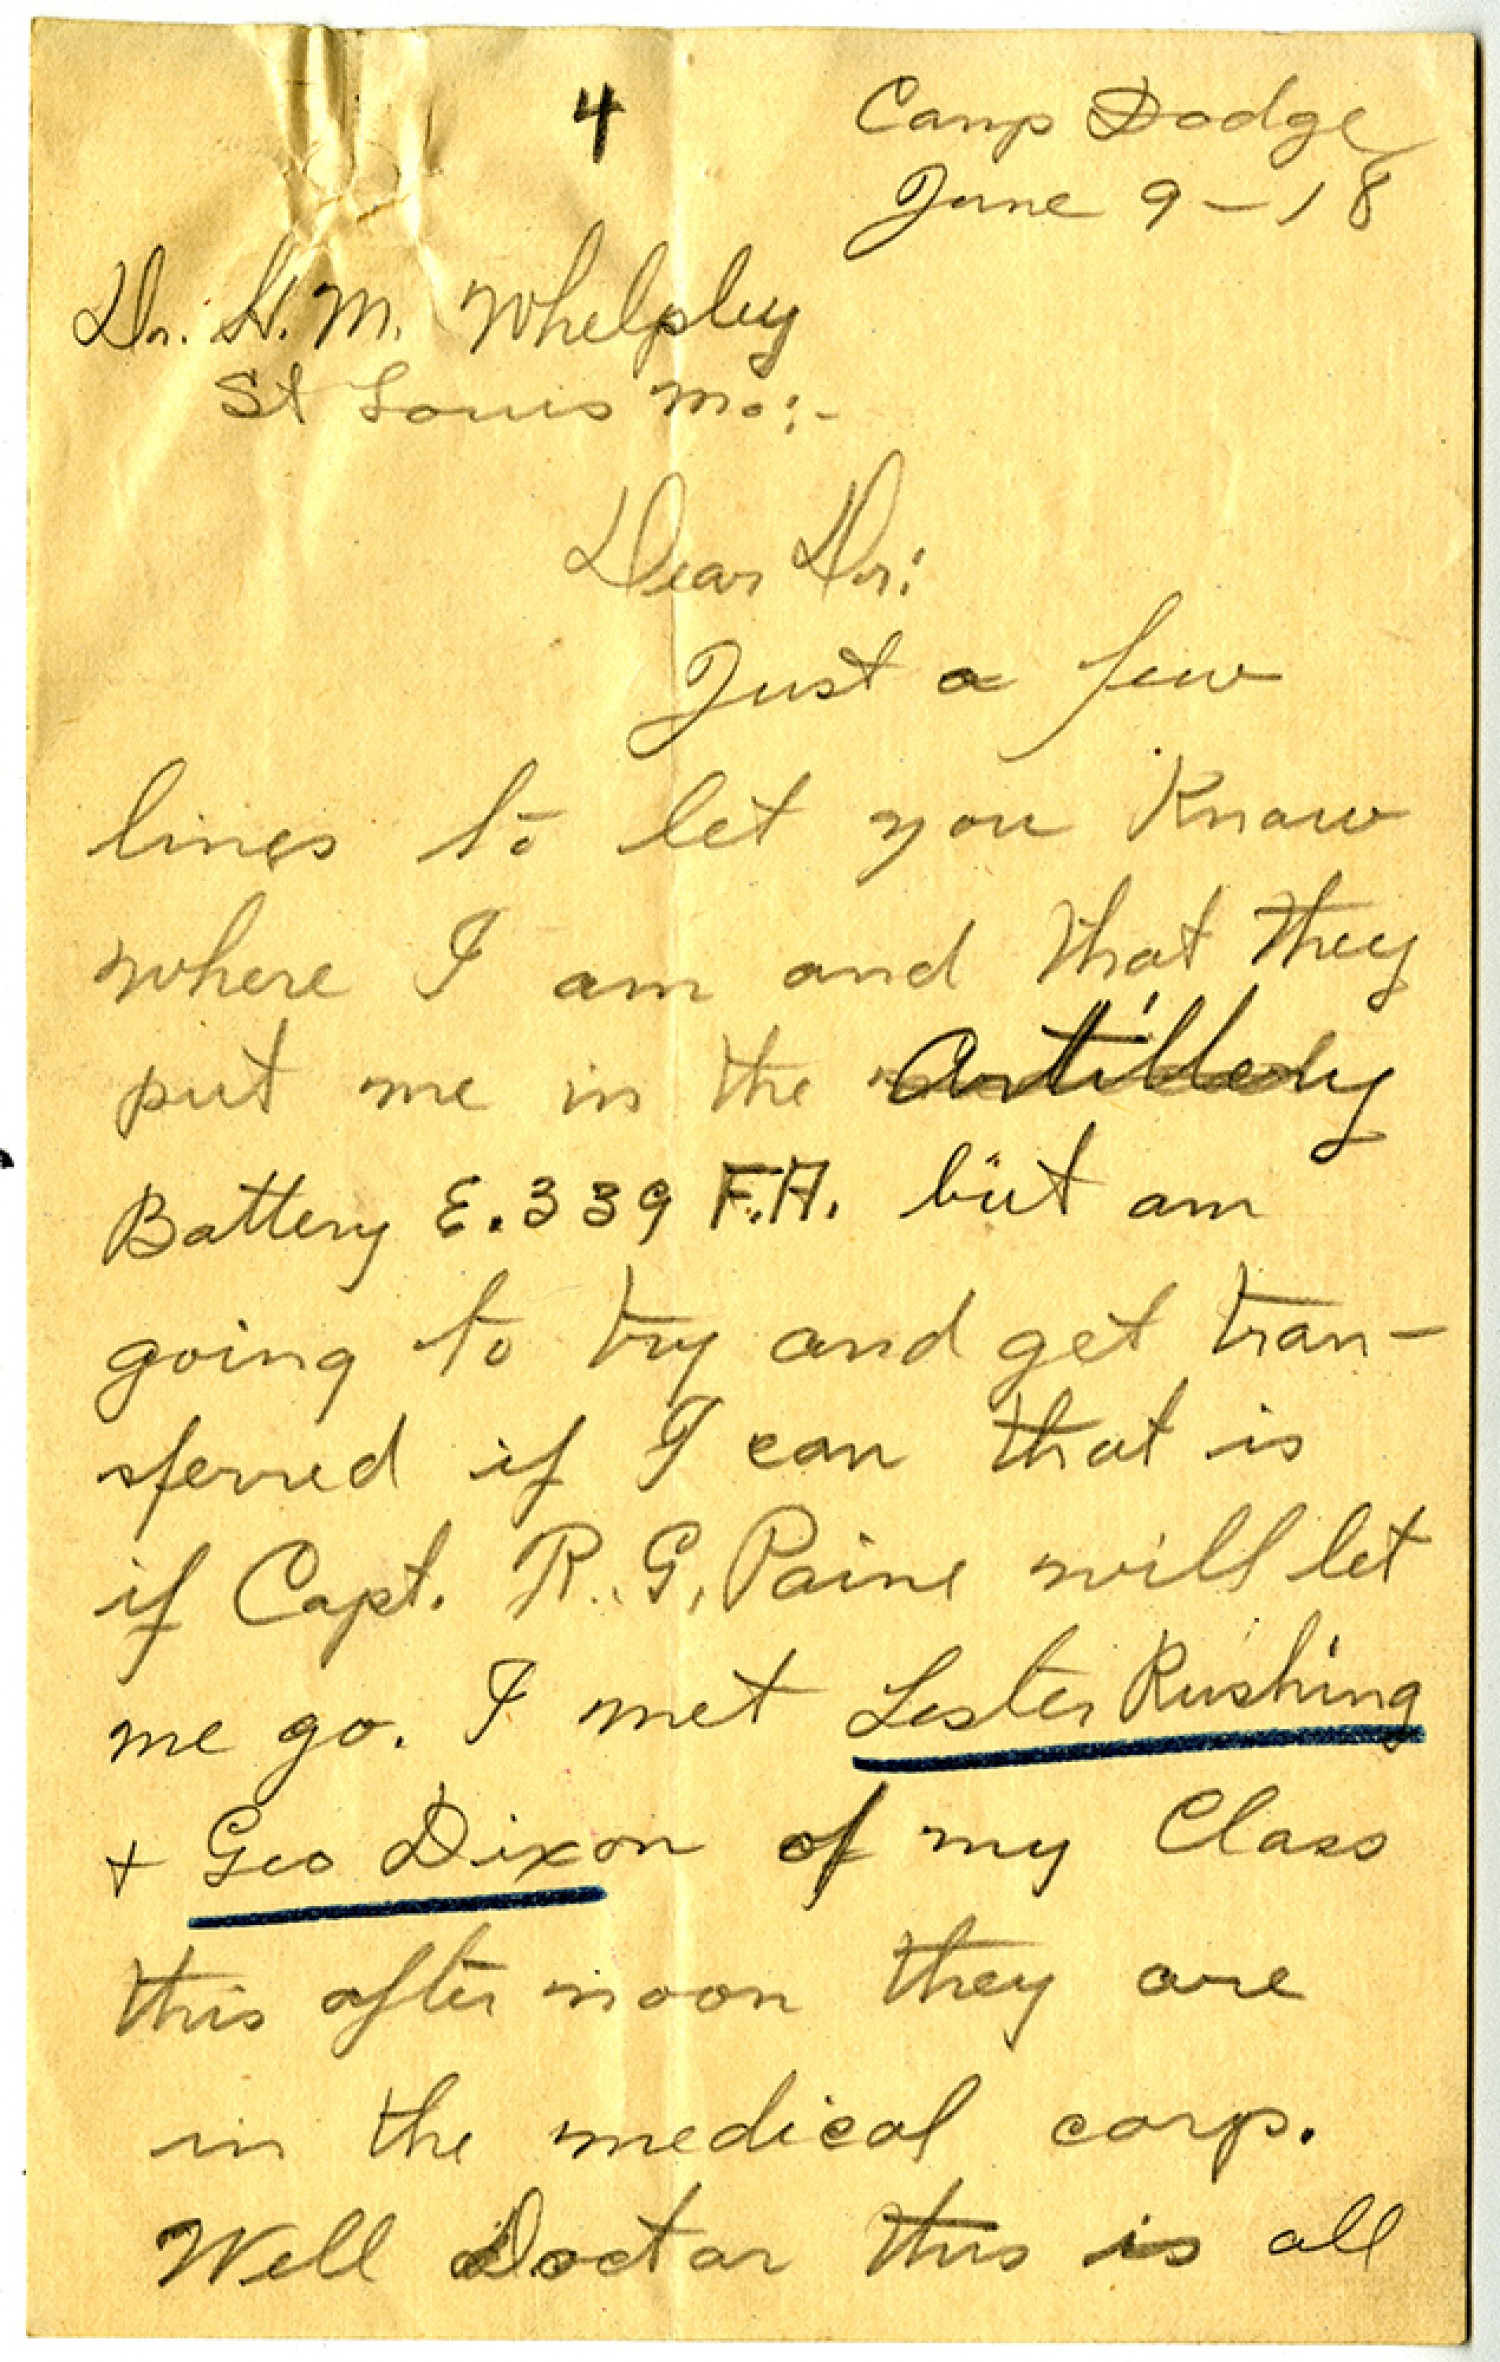 4
Camp Dodge
June 9-18
Dr. H. M. Whelpley
St Louis Mo:-
Dear Dr:
Just a few
lines to let you know
where I am and that they
put me in the Artillery
Battery E. 339 F.A. but am
going to try and get tran-
sferred if I can that is
if Capt. R. G. Paine will let
me go. I met Lester Rushing
+ Geo Dixon of my Class
this after noon they are
in the medical corp.
Well Doctor this is all